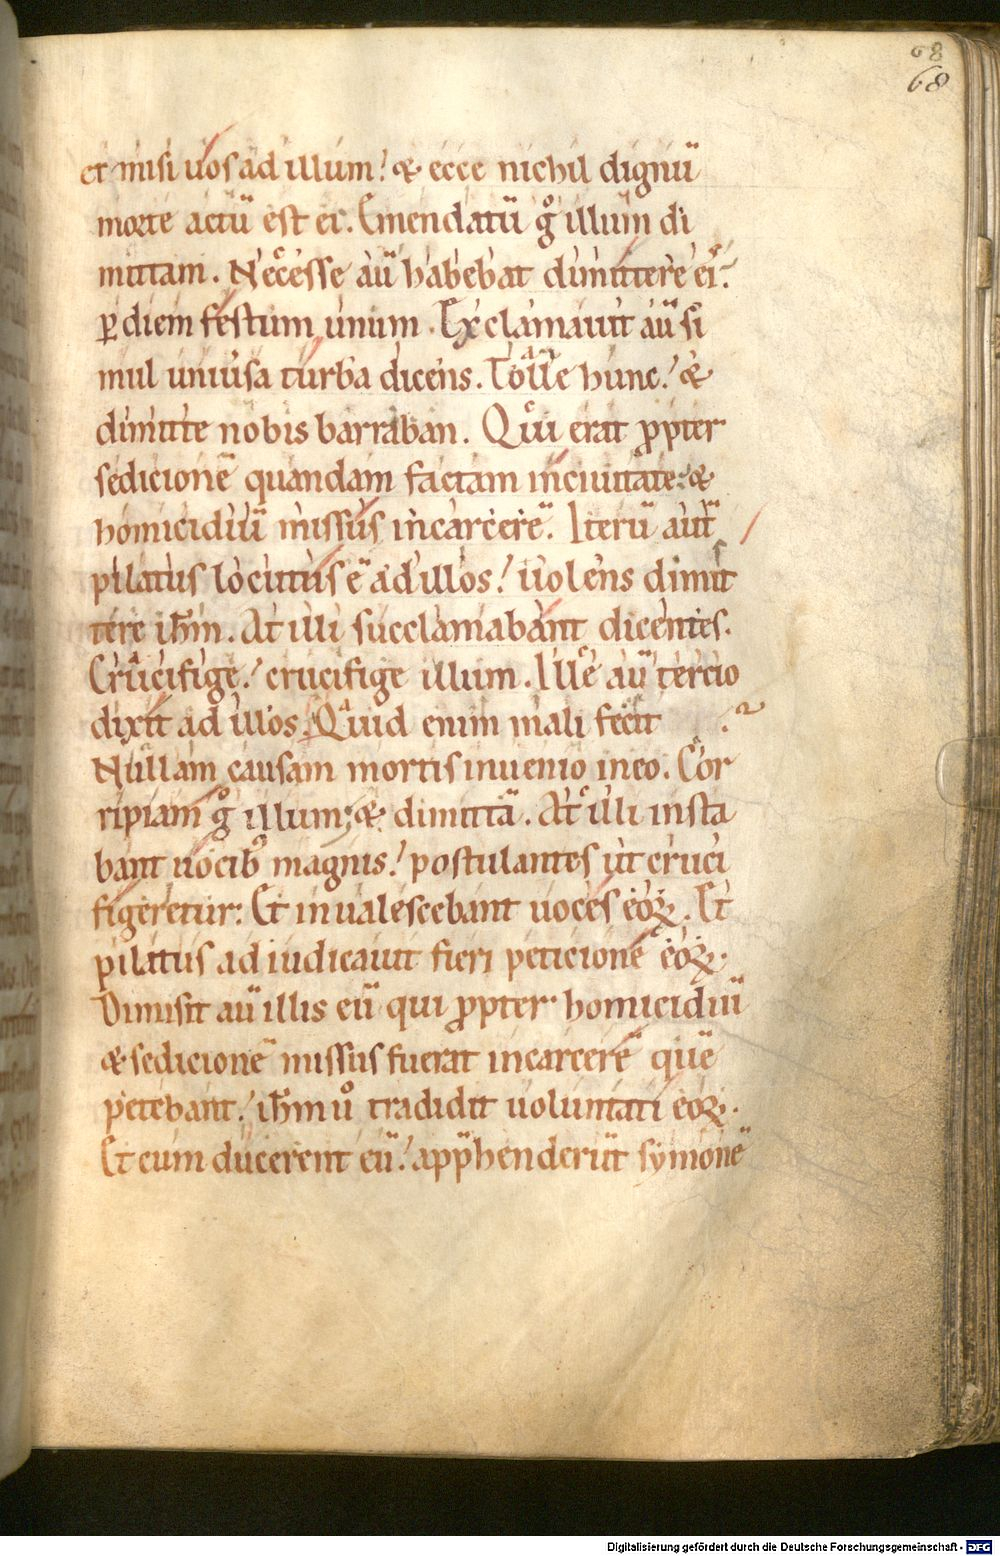 68
68
et misi uos ad illum! & ecce nichil dignū
morte actū est ei. Emendatū gͦ illum di
mittam. Necesse aū habebat dimittere ei!
ꝑ diem festum unum. Exclamauit aū si
mul uniuͥsa turba dicens. Tolle hunc! &
dimitte nobis barraban. Qui erat ꝓpter
sedicionē quandam factam in ciuitate: &
homicidiū missus in carcerē. Iterū aut̄
pilatus locutus ē ad illos! uolens dimit
tere ih̄m. At illi succlamabant dicentes.
Crucifige! crucifige illum. Ille aū tercio
dixit ad illos. Quid enim mali fecit ?
Nullam causam mortis inuenio in eo. Cor
ripiam gͦ illum; & dimittā. At illi insta
bant uocibꝰ magnis! postulantes ut cruci
figeretur: Et inualescebant uoces eoꝝ. Et
pilatus adiudicauit fieri peticionē eoꝝ.
Dimisit aū illis eū qui ꝓpter homicidiū
& sedicionē missus fuerat in carcerē quē
petebant! ih̄m uͦ tradidit uoluntati eoꝝ.
Et cum ducerent eū! app̄henderūt symonē
Digitalisierung gefördert durch die Deutsche Forschungsgemeinschaft - DFG